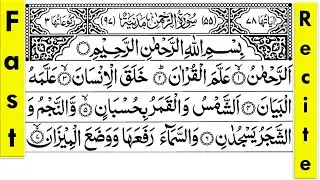 Fast
اٰیَاتُهَا ٧٨ (٥٥) سُوْرَةُ الرَّحْمٰنِ مَدَنِیَّةٌ (٩٧) رُكُوْعَاتُهَا ٣
بِسْمِ اللّٰهِ الرَّحْمٰنِ الرَّحِیْمِ
اَلرَّحْمٰنُ ۙ‏ عَلَّمَ الْقُرْاٰنَ ؕ‏ خَلَقَ الْاِنْسَانَ ۙ‏ عَلَّمَهُ
الْبَیَانَ اَلشَّمْسُ وَ الْقَمَرُ بِحُسْبَانٍ وَّ النَّجْمُ وَ
الشَّجَرُ یَسْجُدٰنِ وَ السَّمَآءَ رَفَعَهَا وَ وَضَعَ الْمِیْزَانَ
Recite